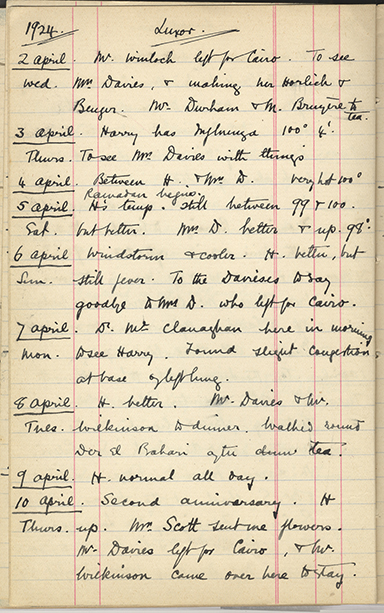 1924. Luxor.
2 April. Mr. Winlock left for Cairo. To see
Wed. Mrs Davies, & making her Horlick &
Benger. Mr. Durham & M. Bruyere to tea.
3 April. Harry has Influenza 100° 4'.
Thurs. To see Mrs. Davies with things
4 April. Between H. & Mrs D. very hot 100°
Ramadan begins.
5 April. H's temp. still between 99 & 100.
Sat. but better. Mrs D. better & up. 98°.
6 April Windstorm & cooler. H. better, but
Sun. still fever. To the Davieses to say
goodbye to Mrs D. who left for Cairo.
7 April. Dr. McClanaghan here in morning
Mon. to see Harry. Found slight congestion
at base of left lung.
8 April. H. better. Mr. Davies & Mr.
Tues. Wilkinson to dinner. Walked round
Der El Bahari after tea.
9 April. H. normal all day.
10 April. Second anniversary. H
Thurs. up. Mrs. Scott sent me flowers.
Mr. Davies left for Cairo, & Mr.
Wilkinson came over here to stay.